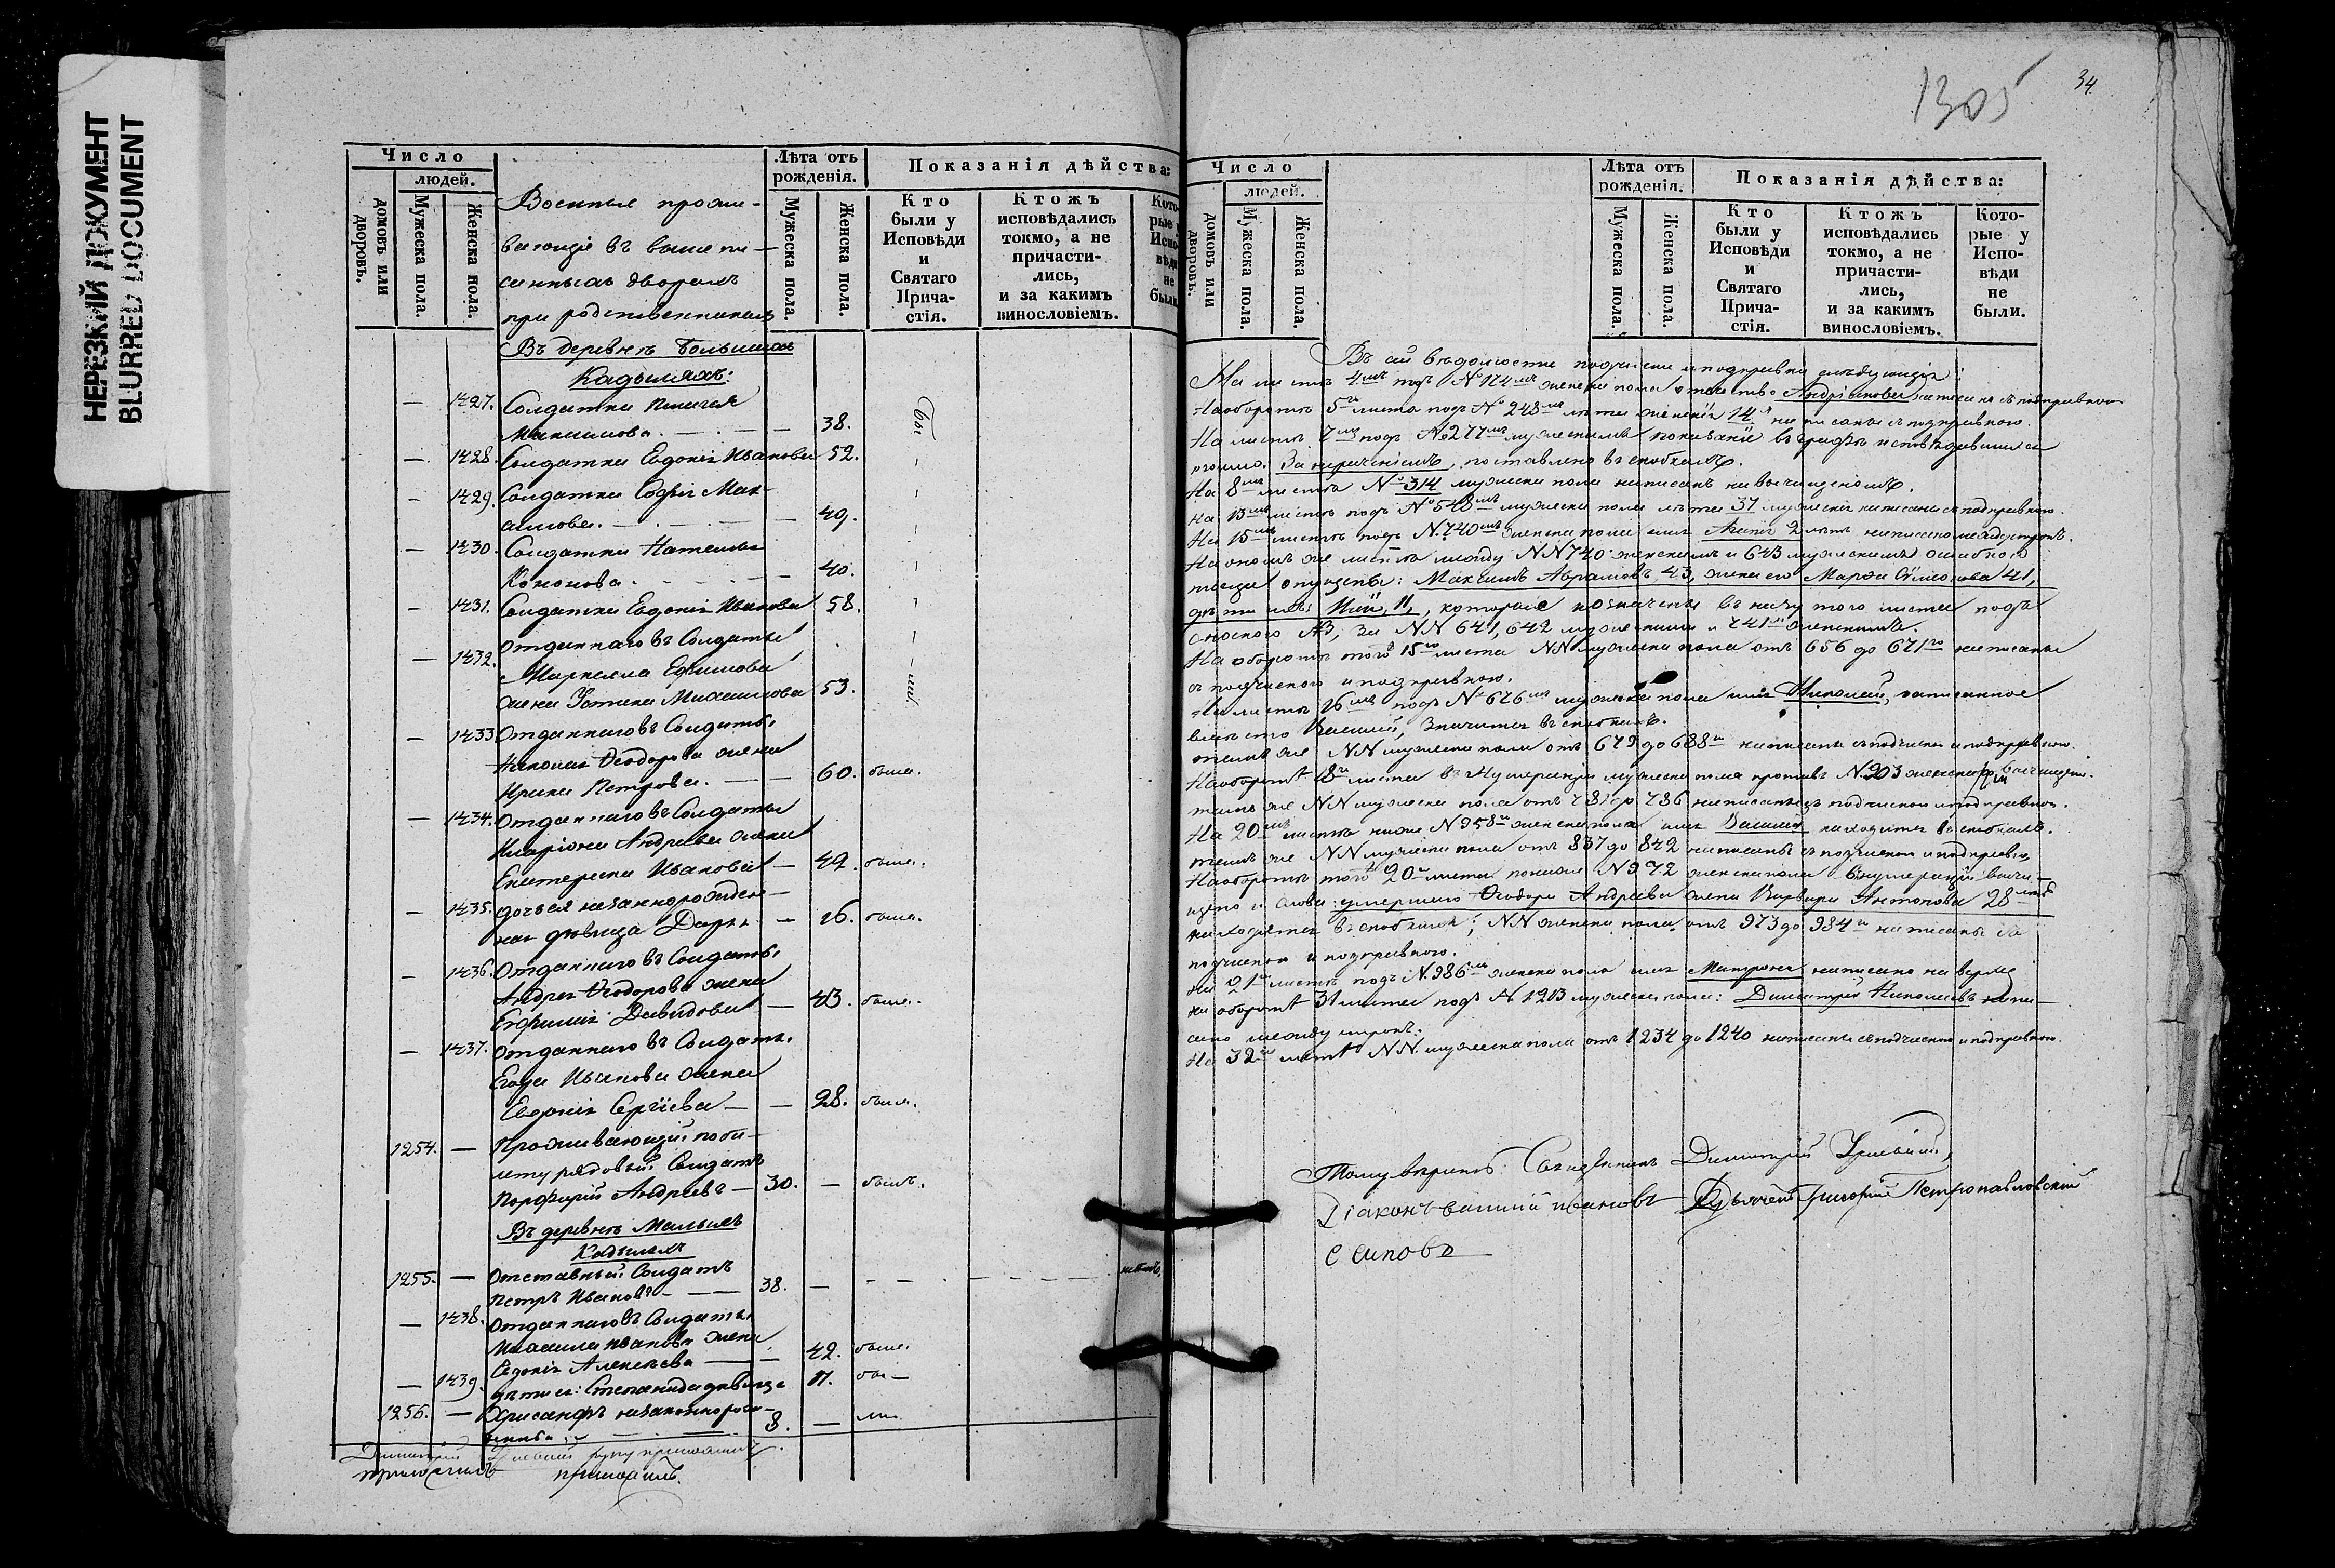 НЕРЕЗКИЙ ДОКУМЕНТ
BLURRED DOCUMENT
Число
людей.
домовъ или дворовъ.
Мужеска пола.
Женска пола.
Лѣта отъ рожденія.
Мужеска пола.
Женска пола.
Показанія дѣйства:
Кто были у Исповѣди и Святаго Прича-стія.
Ктожъ исповѣдались токмо, а не причасти-лись, и за какимъ винословіемъ.
Кото-рые Испо-вѣди не были
Военные прожи-
вающіе въ выше пи-
санныхъ дворахъ
при родственникахъ
Въ деревнѣ Большихъ
Кадыляхъ:
— 1427. Солдатка
Максимова. — 38. бы
— 1428. Солдатка Евдокія Иванова 52.
— 1429. Солдатка Софія Мак-
симова. — 49.
— 1430. Солдатка Наталья
Кононова. — 40.
— 1431. Солдатка Евдокія Иванова 58.
— 1432. Отданнаго въ Солдаты
Маркелла Ефимова
жена Устинья Михаилова 53. ли.
— 1433. Отданнаго въ Солдаты
Николая Ѳеодорова жена
Ирина Петрова. — — 60. была.
— 1434. Отданнаго въ Солдаты
Иларіона Андреева жена
Екатерина Иванова — 49. была.
— 1435. дочь ея незаконнорожден-
ная дѣвица Дарья — 16. была.
— 1436. Отданнаго въ Солдаты
Андрея Ѳеодорова жена
Евфимія Давидова — 43. была.
— 1437. Отданнаго въ Солдаты
Егора Иванова жена
Евдокія Сергіева — — 28. была.
1254. — Проживающій по би-
лету рядовый Солдатъ
Порфирій Андреевъ — 30. — былъ.
Въ деревнѣ Малыхъ
Кадыляхъ
1255. — Отставный Солдатъ
Петръ Ивановъ — — 38. — — — не былъ,
— 1438. Отданнаго въ Солдаты
Михаила Иванова жена
Евдокія Алексѣева — — 42. была.
— 1439. дѣти ея: Степанида дѣвица 17. бы—
1256. — Хрисанфъ незаконнорож-
8. — ли
Димитрій руку приложилъ.
приложилъ приложилъ.
1305
34.
Число
людей.
домовъ или дворовъ.
Мужеска пола.
Женска пола.
Лѣта отъ рожденія.
Мужеска пола.
Женска пола.
Показанія дѣйства:
Кто были у Исповѣди и Святаго Прича-стія.
Ктожъ исповѣдались токмо, а не причасти-лись, и за какимъ винословіемъ.
Кото-рые у Испо-вѣди не были.
Въ сей вѣдомости подчистки и подправки слѣдующія:
На листѣ 4мъ подъ № 124мъ женска пола отчество Андріанова написано съ подправкою
На оборотѣ 5го листа подъ № 248мъ лѣта женскія 14 написаны съ подправкою.
На листѣ 7мъ подъ № 277мъ мужескимъ показаніе въ графѣ исповѣдавшихся
токмо. За нераченіемъ, поставлено въ скобкахъ.
На 8мъ листѣ № 314 мужеска пола написанъ на вычищеномъ.
На 13мъ листѣ подъ № 548мъ мужеска пола лѣта 37 мужескія написаны съ подправкою.
На 15мъ листѣ подъ N. 740мъ женска пола имя 2 лѣтъ написано между строкъ.
На ономъ же листѣ между NN 740 женскимъ и 643 мужескимъ ошибкою
опущены: Максимъ Аврамовъ, 43, жена его Марѳа Симонова 41,
дѣти ихъ: 11, которые назначены въ низу того листа подъ
сноскою за NN 641, 642 мужескими и 741м женскимъ.
На оборотѣ того 15го листа NN мужеска пола отъ 656 до 671го написаны
съ подчисткою и подправкою.
На листѣ 16мъ подъ № 676мъ мужеска пола имя Николай, написанное
вмѣсто Василій, значится въ скобкахъ.
тамъ же NN мужеска пола отъ 679 до 688 написаны съ подчисткою и подправкою.
На оборотѣ 18го листа въ Нумераціи мужеска пола противъ N. 903 женскаго вычищено.
тамъ же NN мужеска пола отъ 781 до 786 написаны съ подчисткою и подправкою.
На 20мъ листѣ ниже N 958 женска пола имя Василій находится въ скобкахъ.
тамъ же NN мужеска пола отъ 837 до 842 написаны съ подчисткою и подправкою
На оборотѣ того 20 листа пониже N 972 женска пола въ нумераціи вычи-
щено и слова: умершаго Ѳеодора Андреева жена Варвара Антонова 28 лѣтъ
находятся въ скобкахъ; NN женска пола отъ 973 до 984 написаны съ
подчисткою и подправкою.
На 21 листѣ подъ N. 986мъ женска пола имя Матрона написано на верху
на оборотѣ 31 листа подъ N 1213 мужеска пола: Димитрій Николаевъ напи-
сано между строкъ.
На 32м листѣ NN. мужеска пола отъ 1234 до 1240 написаны съ подчисткою и подправкою.
Священникъ Димитрій
Діаконъ Василій Ивановъ Дьячекъ Григорій Петропавловскій
Осиповъ